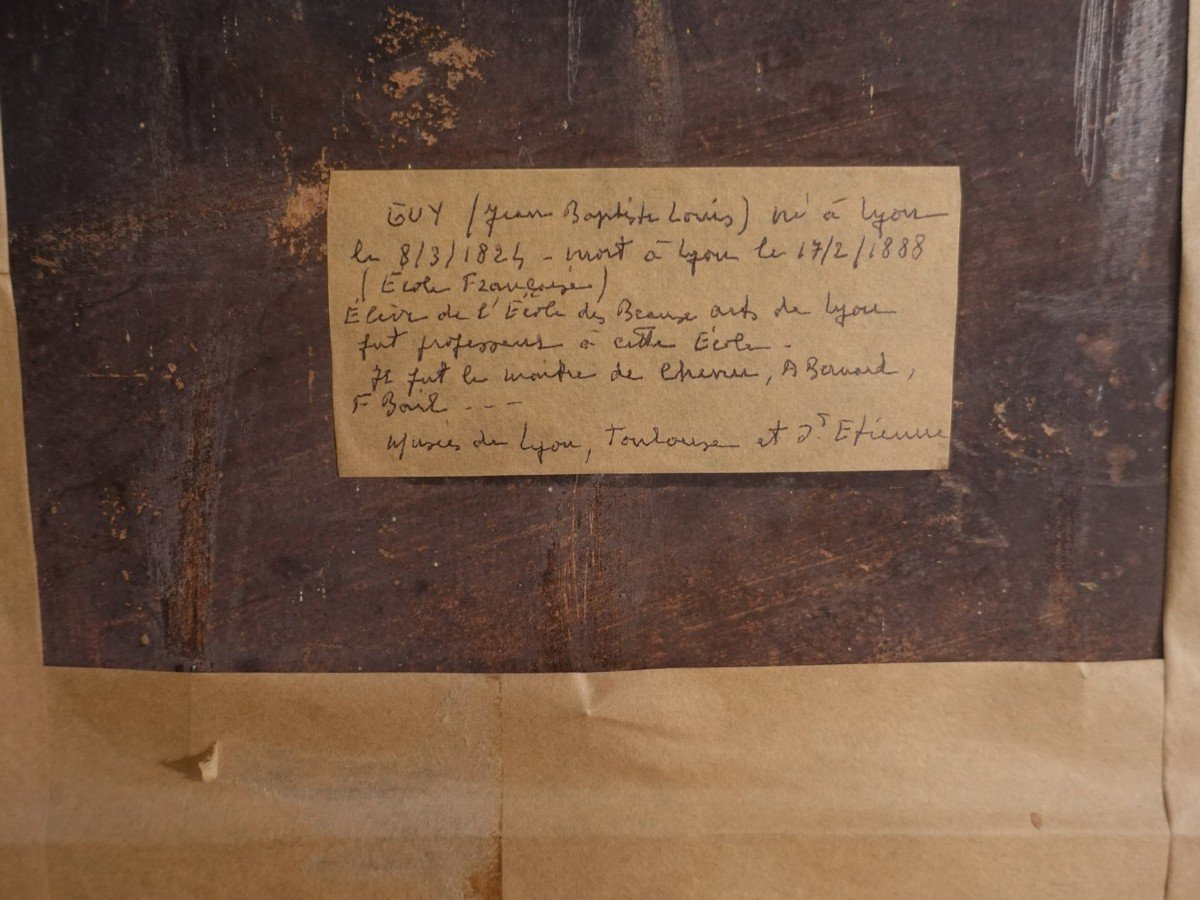 GUY (Jean Baptiste Louis) né à Lyon
le 8/3/1824 - mort à Lyon le 17/2/1888
(École Française)
Élève de l'École des Beaux arts de Lyon
fut professeur à cette École -
Il fut le maître de , A Bernard,
F - - -
Musées de Lyon, Toulouse et St Etienne